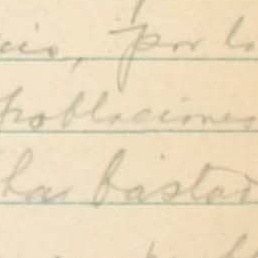 cio, por lo
poblaciones
ha bastad